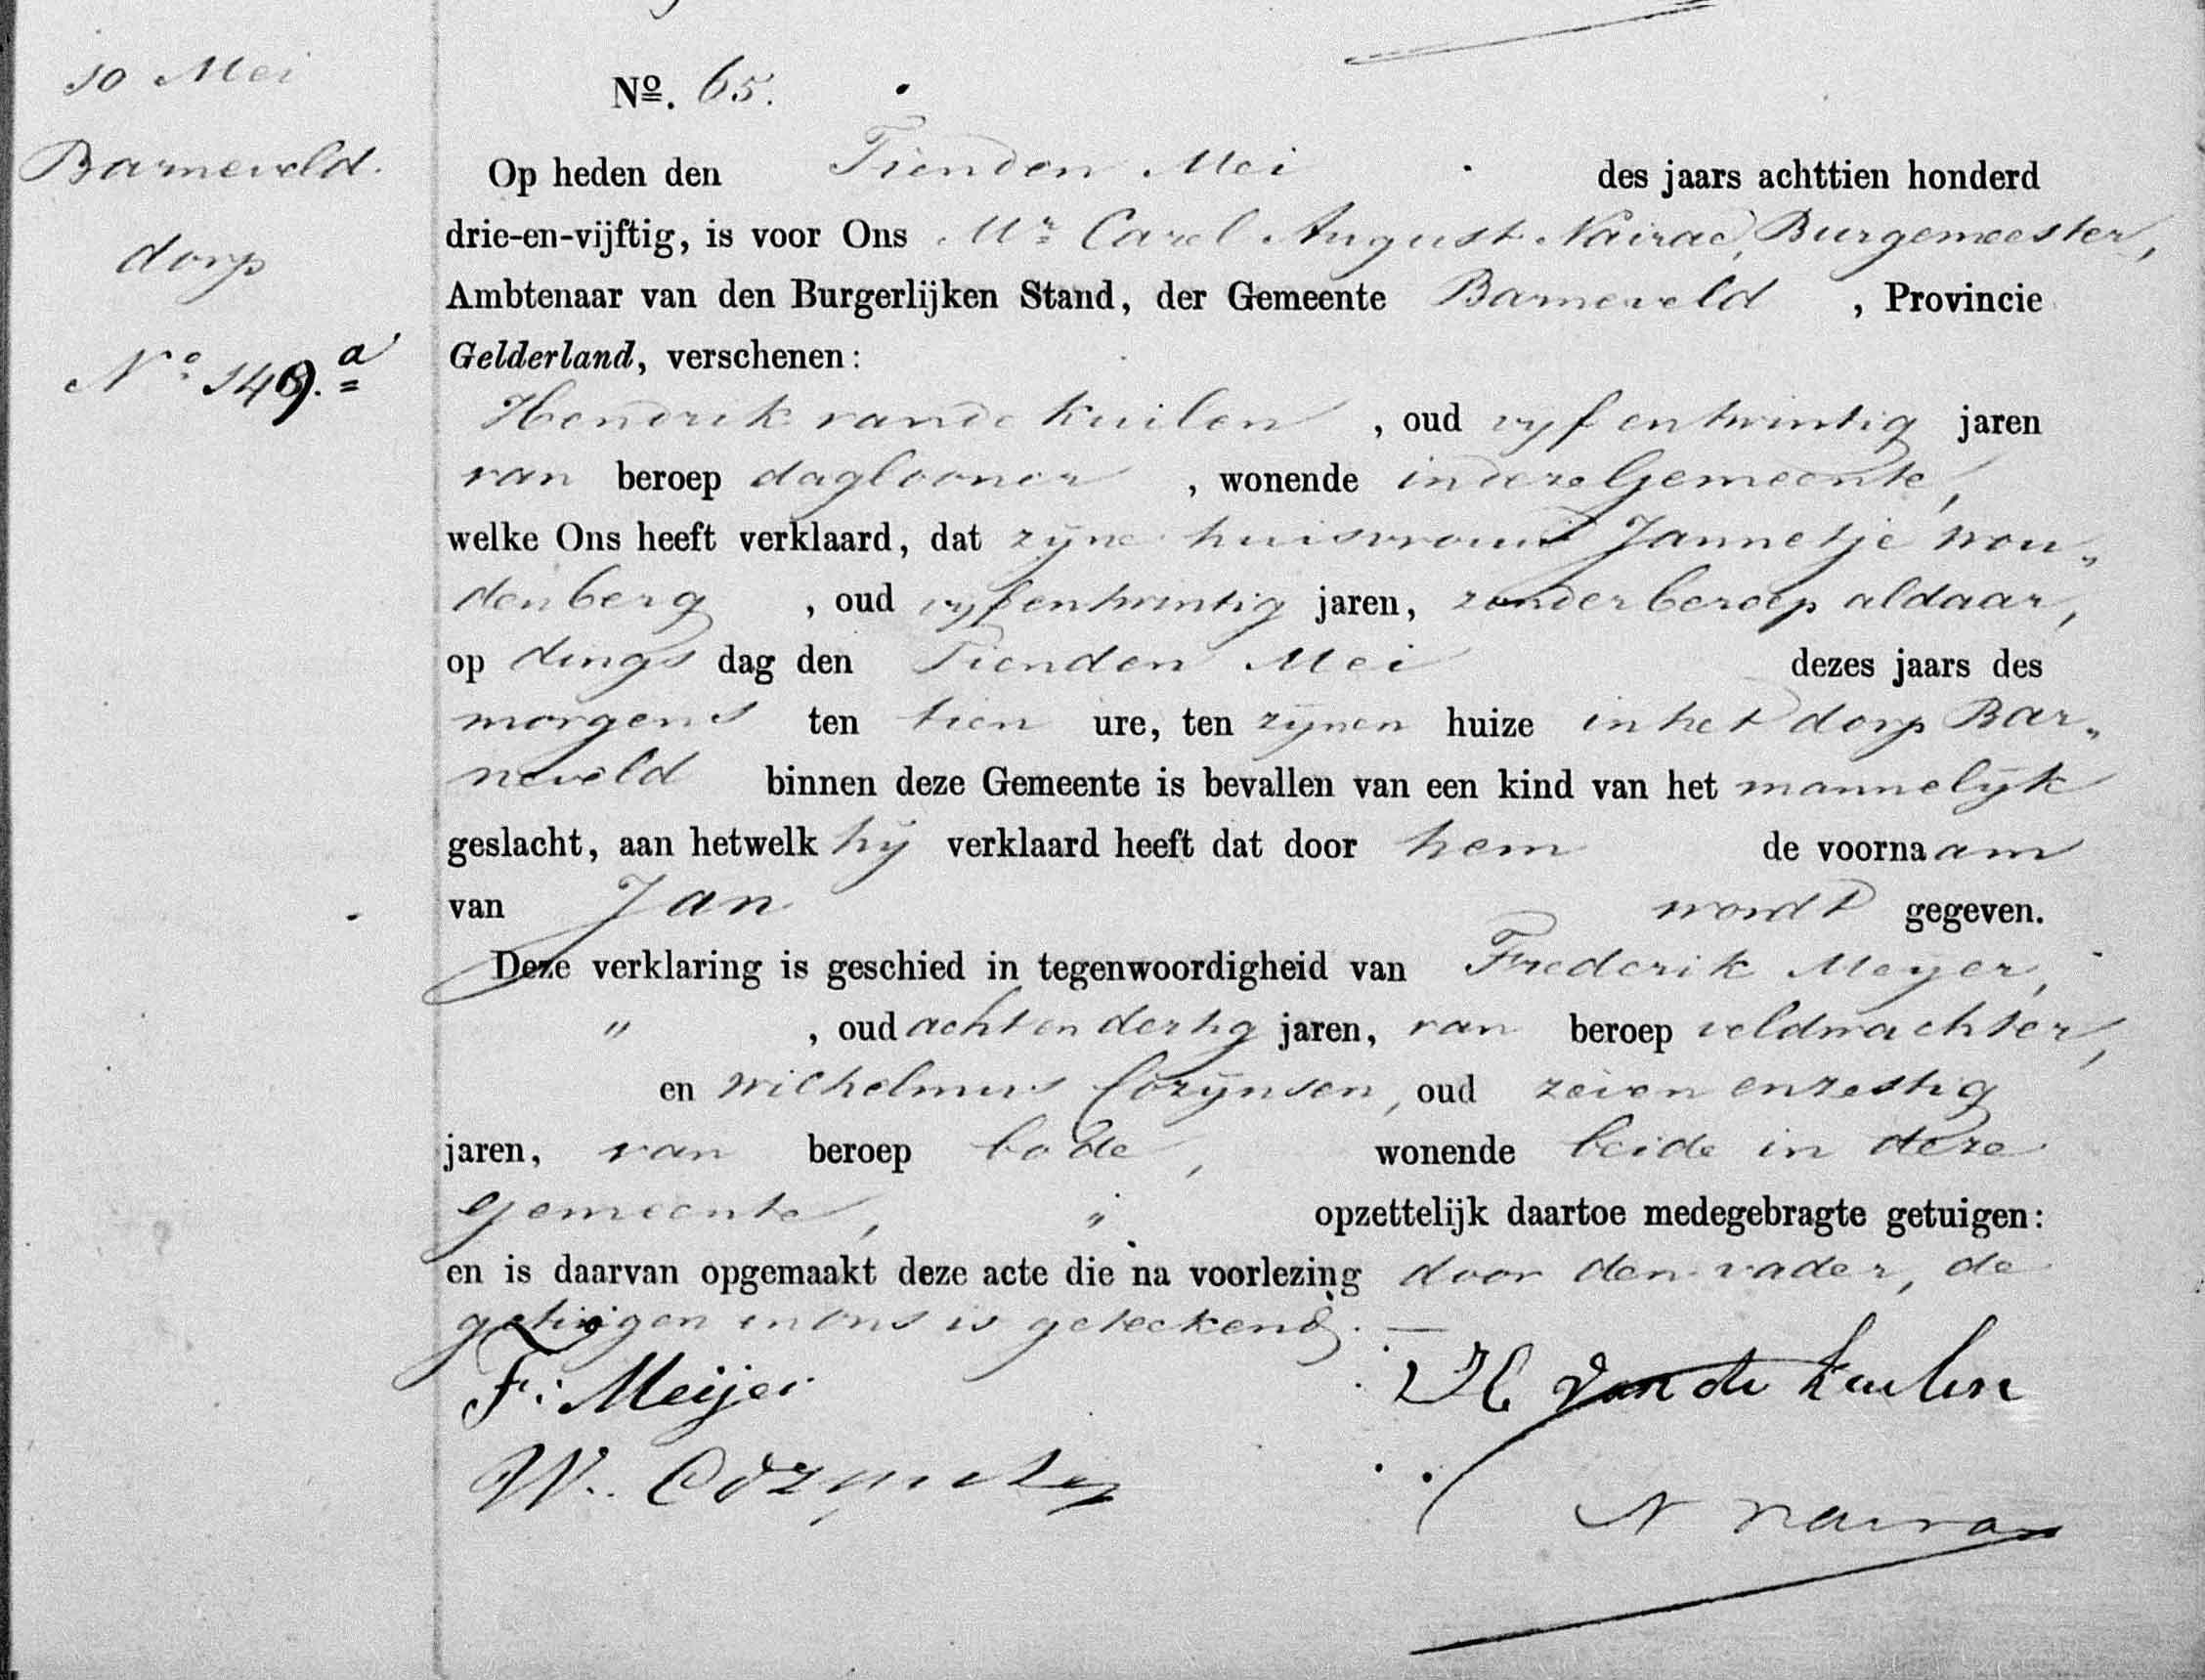 10 Mei
Barneveld.
dorp
No. 149.a
No. 65.
Op heden den Tienden Mei des jaars achttien honderd
drie-en-vijftig, is voor Ons Mr. Carel August Nairac, Burgemeester,
Ambtenaar van den Burgerlijken Stand, der Gemeente Barneveld , Provincie
Gelderland, verschenen:
Hendrik van de Kuilen , oud vyf en twintig jaren
van beroep daglooner , wonende in deze Gemeente,
welke Ons heeft verklaard, dat zyne huisvrouw Jannetje Wou„
denberg , oud vyf en twintig jaren, zonder beroep aldaar,
op dings dag den Tienden Mei dezes jaars des
morgens ten tien ure, ten zynen huize in het dorp Bar„
neveld binnen deze Gemeente is bevallen van een kind van het mannelyk
geslacht, aan hetwelk hy verklaard heeft dat door hem de voornaam
van Jan wordt gegeven.
Deze verklaring is geschied in tegenwoordigheid van Frederik Meyer,
" , oud acht en dertig jaren, van beroep veldwachter,
en Wilhelmus Cozynsen, oud zeven en zestig
jaren, van beroep bode, wonende beide in deze
gemeente, " opzettelijk daartoe medegebragte getuigen:
en is daarvan opgemaakt deze acte die na voorlezing door den vader, de
getuigen en ons is geteekend. —
F. Meijer
H van de Kuilen
W. Cozynsen
Nairac